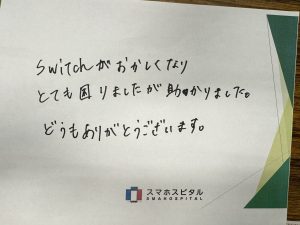 Switchがおかしくなり
とても困りましたが助かりました。
どうもありがとうございます。
スマホスピタル
SMAHOSPITAL